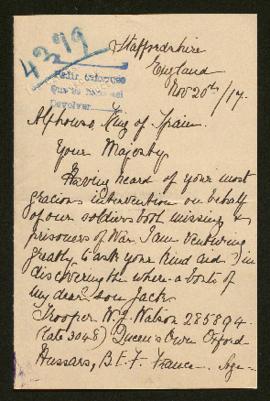 4379
Staffordshire
England
Nov 20th/17.
Pedir informes
Que se
Devolver
Alphonso, King of Spain.
Your Majesty
Having heard of your most
gracious intervention on behalf
of our soldiers both missing &
prisoners of War, I am venturing
greatly to ask your kind aid in
discovering the where-a-bouts of
my dear son Jack
Trooper W. J. Watson 285894
(late 3048) Queen's Own Oxford
Hussars, B.E.F. France. Age-